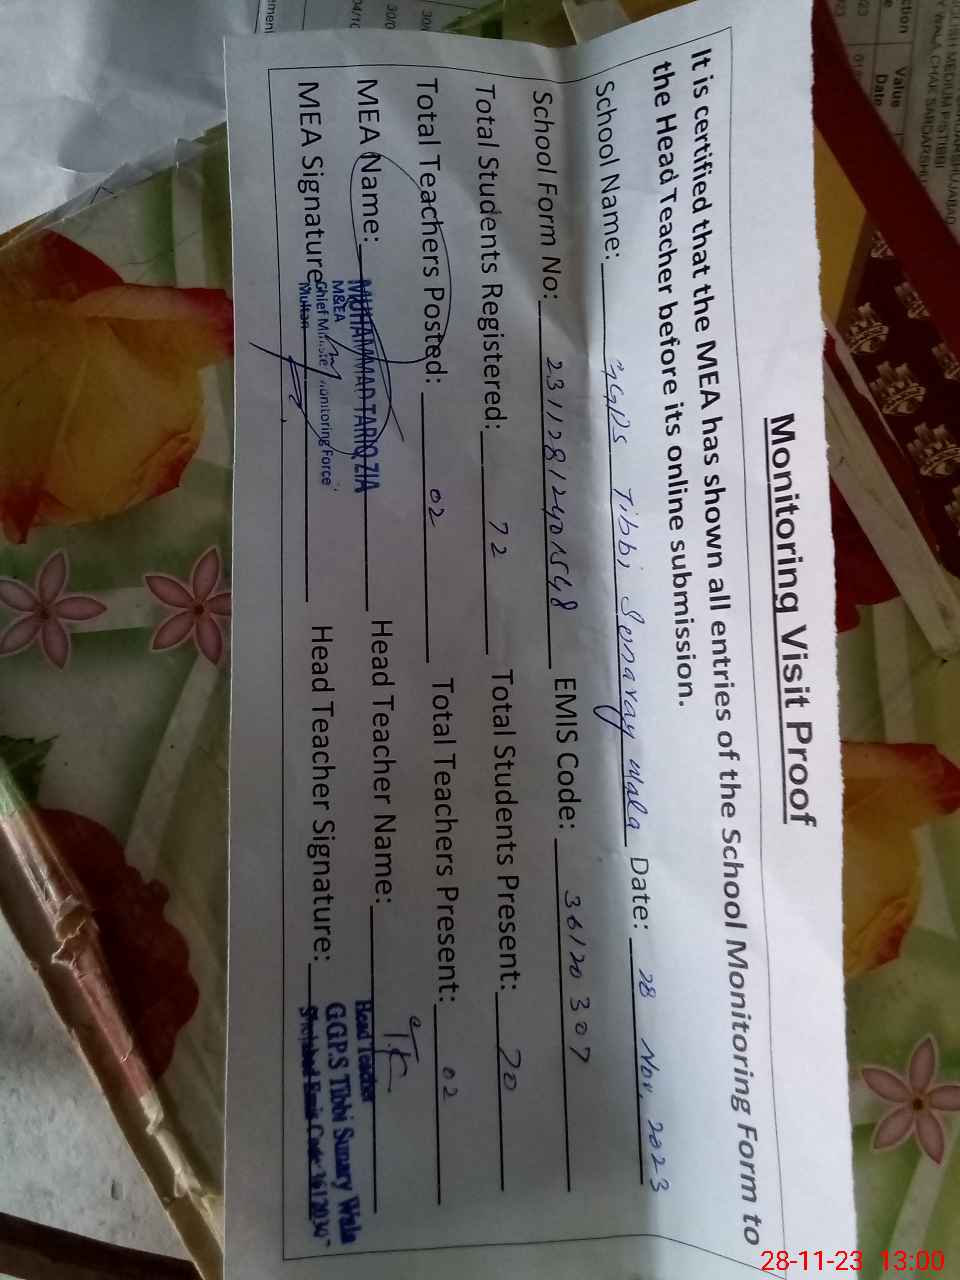 Monitoring Visit Proof
It is certified that the MEA has shown all entries of the School Monitoring Form to
the Head Teacher before its online submission.
School Name: GGPS Tibbi Sonaray Wala Date: 28 Nov, 2023
School Form No: 23112812401548 EMIS Code: 36120307
Total Students Registered: 72 Total Students Present: 70
Total Teachers Posted: 02 Total Teachers Present: 02
MEA Name: MUHAMMAD TARIQ ZIA Head Teacher Name:
M&EA
Chief Monitoring Force
Multan
MEA Signature Head Teacher Signature:
Head Teacher
GGP.S Tibbi Sunary Wala
Emis Code 36120307
Value
Date
28-11-23 13:00